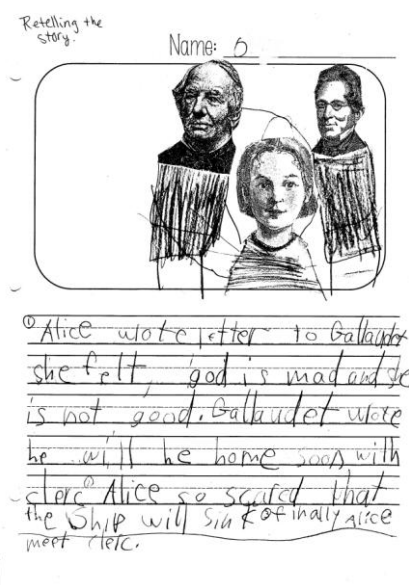 Retelling the
story.
Name: 6
① Alice wote letter to Gallaudet
she felt, god is mad and se
is not good. Gallaudet wote
he will be home soon with
clerc. Alice so scared that
the Ship will sink ofinally Alice
meet clerc.